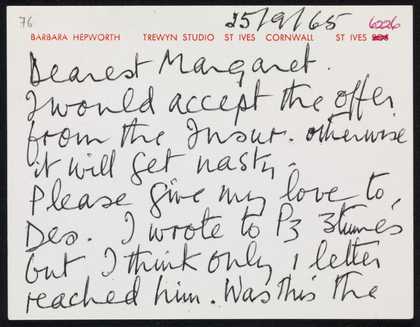 76
25/9/65
6226
BARBARA HEPWORTH TREWYN STUDIO ST IVES CORNWALL ST IVES
Dearest Margaret.
I would accept the offer
from the Insur. otherwise
it will get nasty.
Please give my love to
Des. I wrote to P3 3 times
but I think only 1 letter
reached him. Was this the